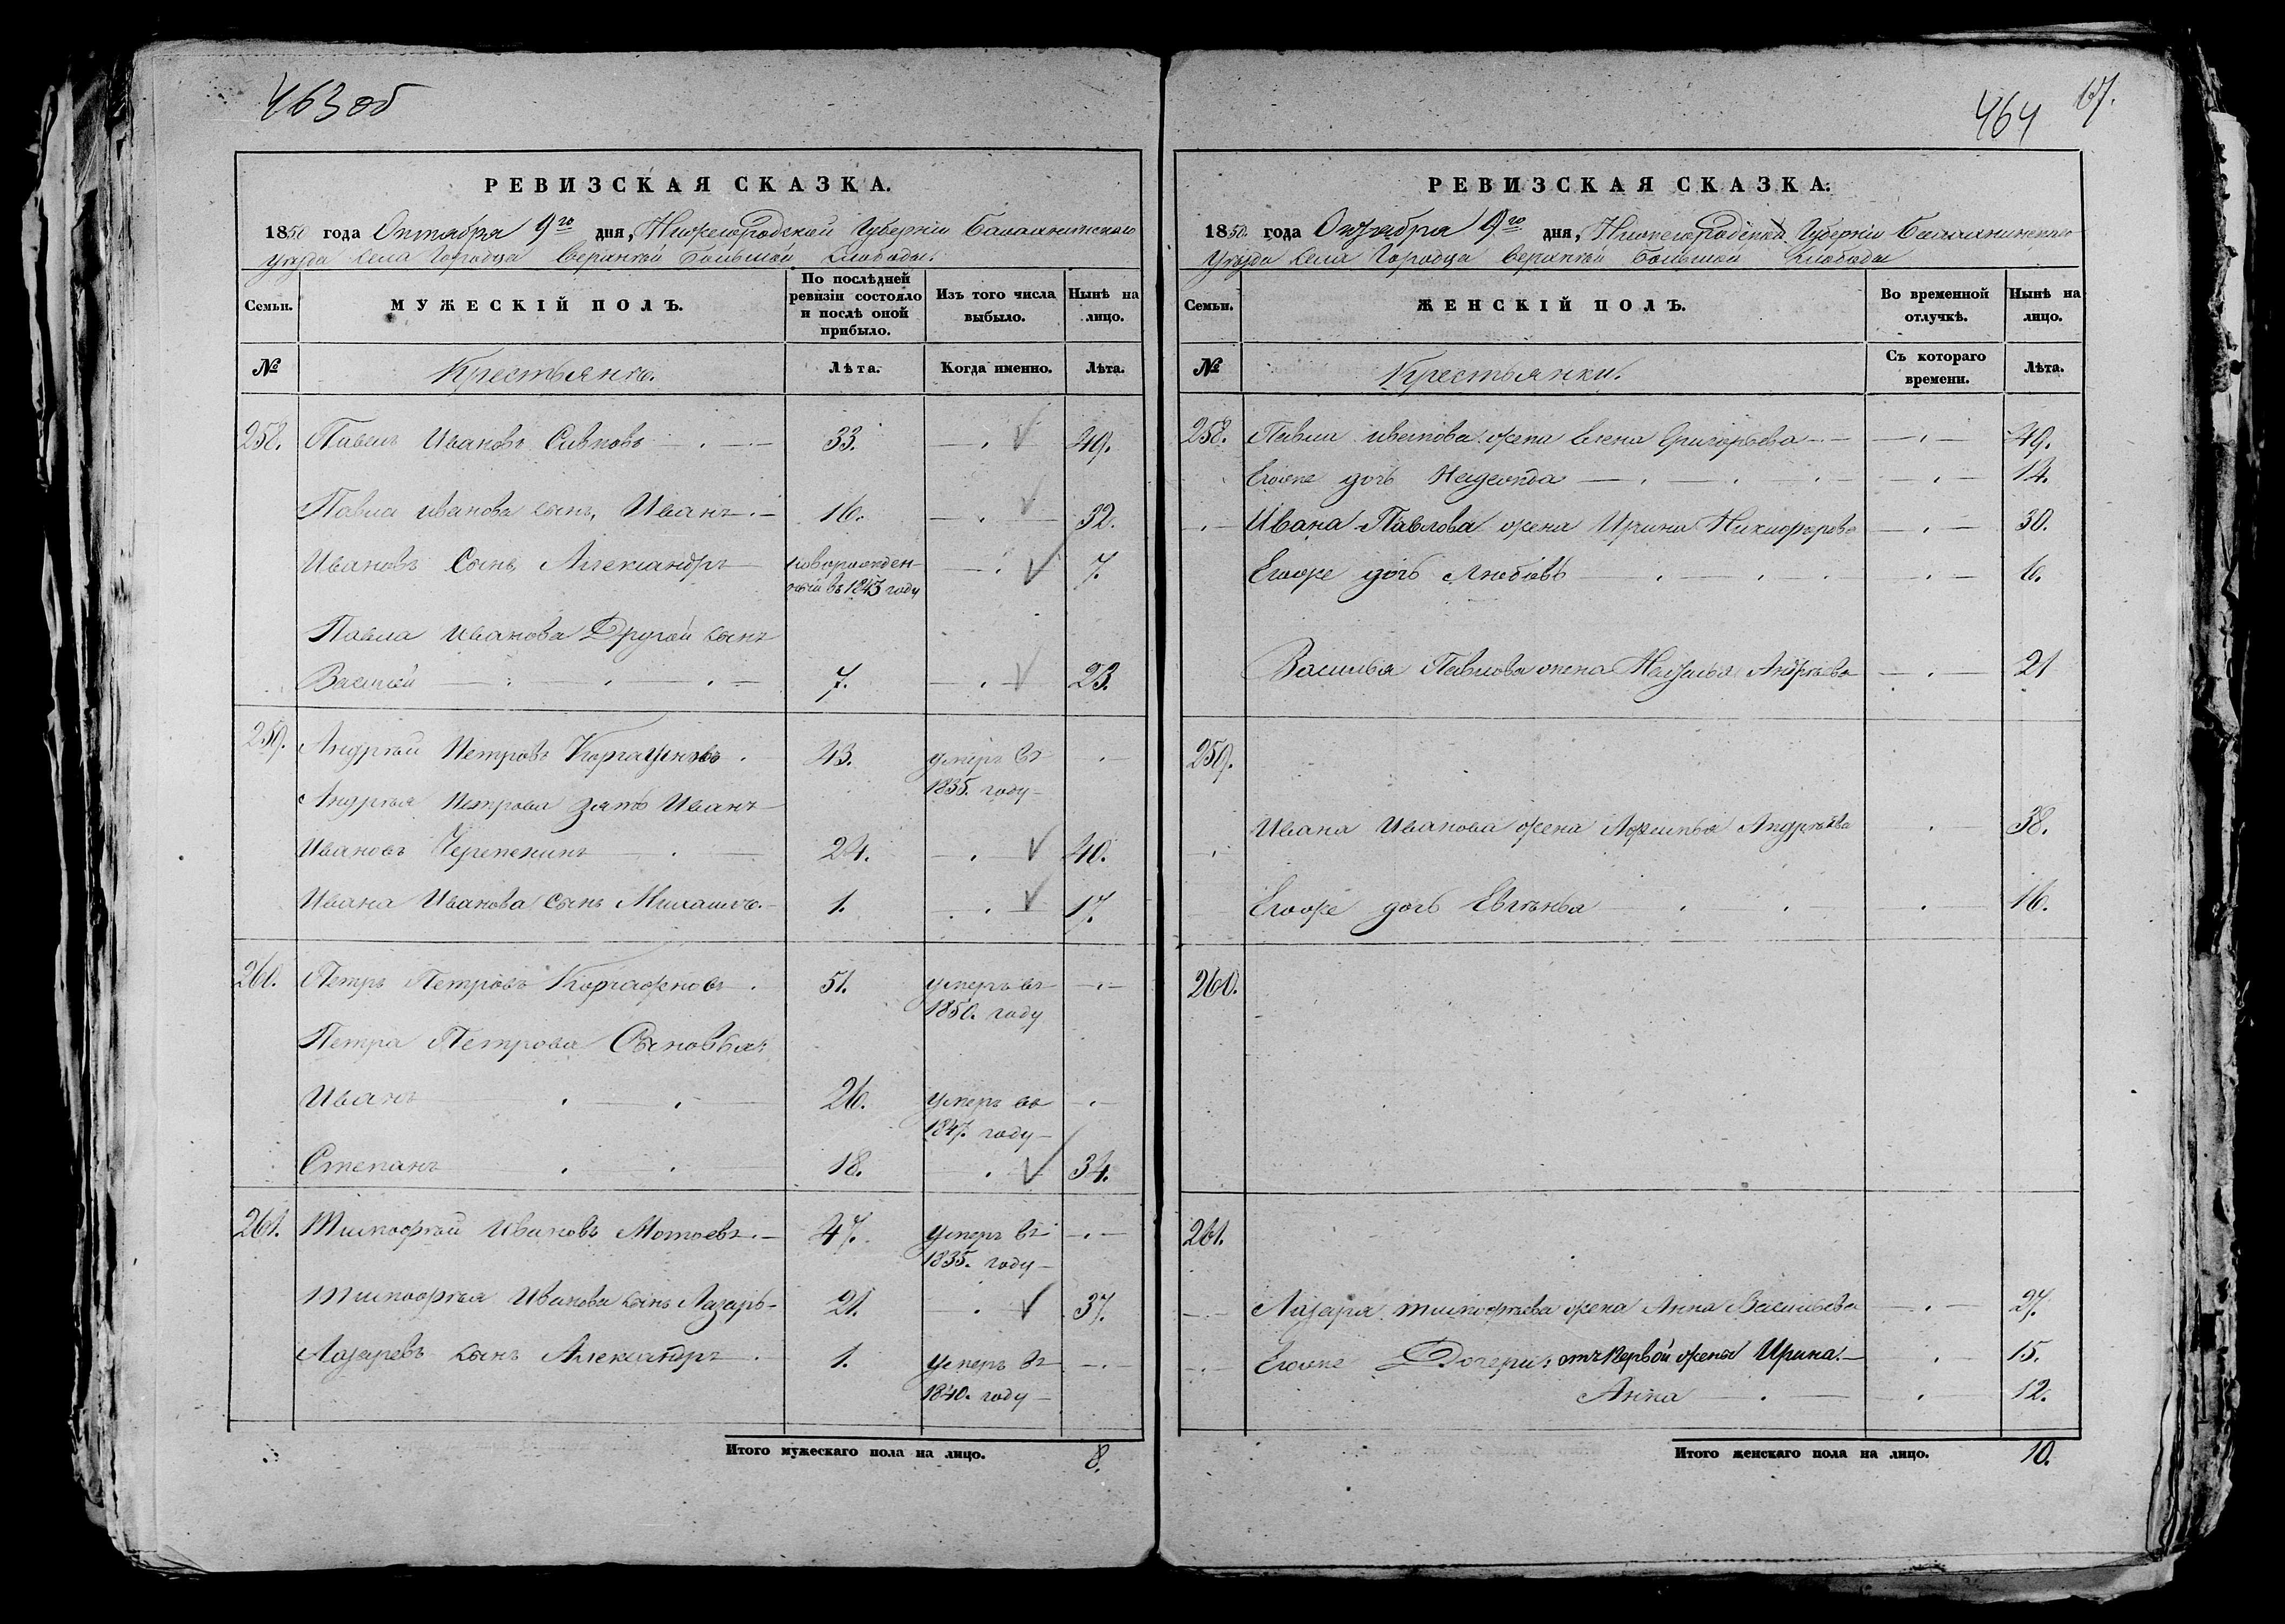 463 об
РЕВИЗСКАЯ СКАЗКА.
1850 года Октября 9го дня, Нижегородской Губерніи Балахнинскаго
уезда села Городца верхней большой слободы.
Семьи.
МУЖЕСКІЙ ПОЛЪ.
По послѣдней ревизіи состояло и послѣ оной прибыло.
Изъ того числа выбыло.
Нынѣ на лицо.
№
Крестьянъ.
Лѣта.
Когда именно.
Лѣта.
258. Павелъ Ивановъ 33. 49.
Павла иванова сынъ, Иванъ 16. 32.
Ивановъ Сынъ Александръ новорожден-
ный въ 1843 году 7.
Павла Иванова Другой сынъ
Василей 7. 23.
259. Андрѣй Петровъ 43. умеръ въ
1835. году
Андрѣя Петрова зять Иванъ
Ивановъ Черепенинъ 24. 40.
Ивана Иванова Сынъ Михаилъ 1. 17.
260. Петръ Петровъ 51. умеръ въ
1850. году
Петра Петрова Сыновья:
Иванъ 26. умеръ въ
1847. году
Степанъ 18. 34.
261. Тимофѣй Ивановъ 47. умеръ въ
1835. году
Тимофѣя Иванова сынъ Лазарь 21. 37.
Лазаревъ сынъ Александръ 1. умеръ въ
1840. году
Итого мужескаго пола на лицо. 8.
464
РЕВИЗСКАЯ СКАЗКА:
1850. года Октября 9го дня, Нижегородской Губерніи Балахнинскаго
Уезда села Городца верхней большой слободы
Семьи.
ЖЕНСКІЙ ПОЛЪ.
Во временной отлучкѣ.
Нынѣ на лицо.
№
Крестьянки.
Съ котораго времени.
Лѣта.
258. Павла иванова жена Елена Григорьева 49.
Егоже дочь 14.
Ивана Павлова жена Ирина Никифорова 30.
Егоже дочь Любовь 6.
Василья Павлова жена Наталья Андрѣева 21
259.
Ивана Иванова жена Андрѣева 38.
Егоже дочь 16.
260.
261.
Лазаря тимофѣева жена Анна Васильева 27.
Егоже Дочери: отъ первой жены Ирина 15.
Анна 12.
Итого женскаго пола на лицо. 10.